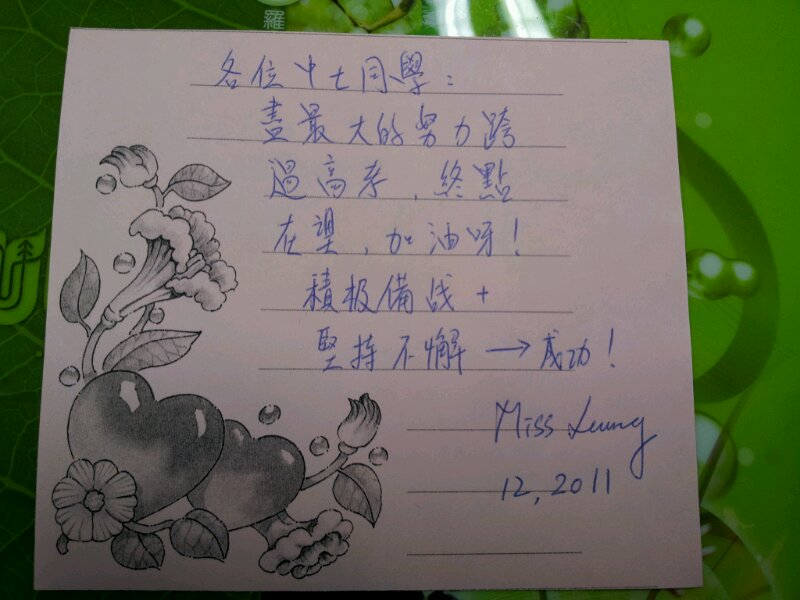 羅
各位中七同學：
盡最大的努力跨
過高考，終點
在望，加油呀！
積极備战 +
堅持不懈 → 成功！
Miss Leung
12, 2011